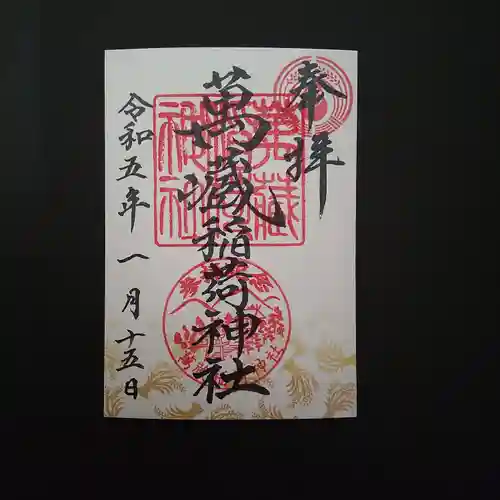 奉拝
萬蔵稲荷神社
令和五年一月十五日